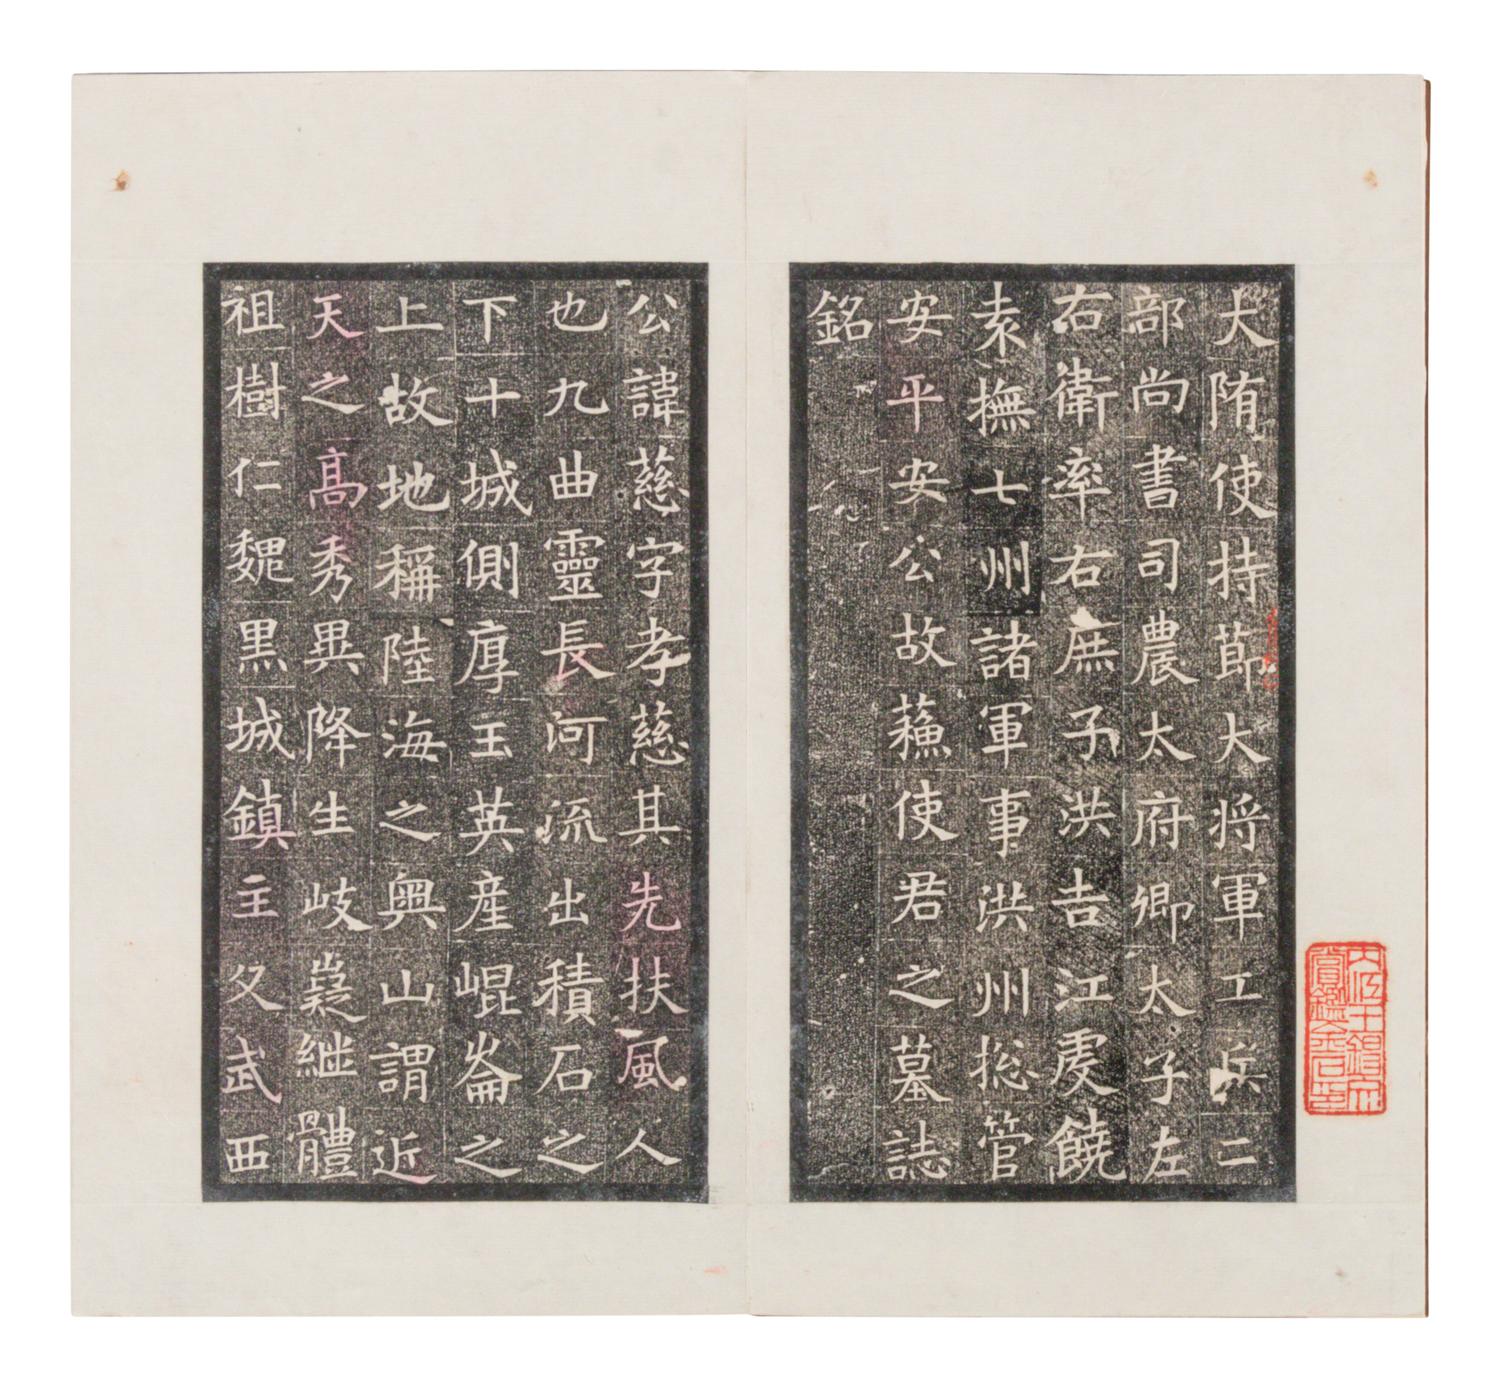 大隋使持節大将軍工兵二
部尚書司農太府卿太子左
右衛率右庶子洪吉江虔饒
袁撫七州諸軍事洪州総管
安平安公故蘓使君之墓誌
銘
公諱慈字孝慈其先扶風人
也九曲靈長河流出積石之
下十城側厚玉英産崐崙之
上故地稱陸海之奥山謂近
天之髙秀異降生岐嶷継體
祖樹仁魏黒城鎮主父武西